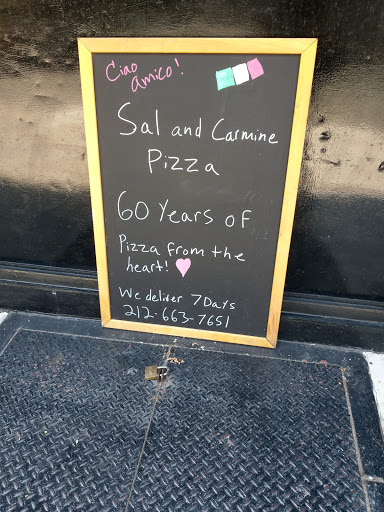 Ciao
amico!
Sal and Carmine
Pizza
60 Years of
Pizza from the
heart!
We deliver 7 Days
212-663-7651